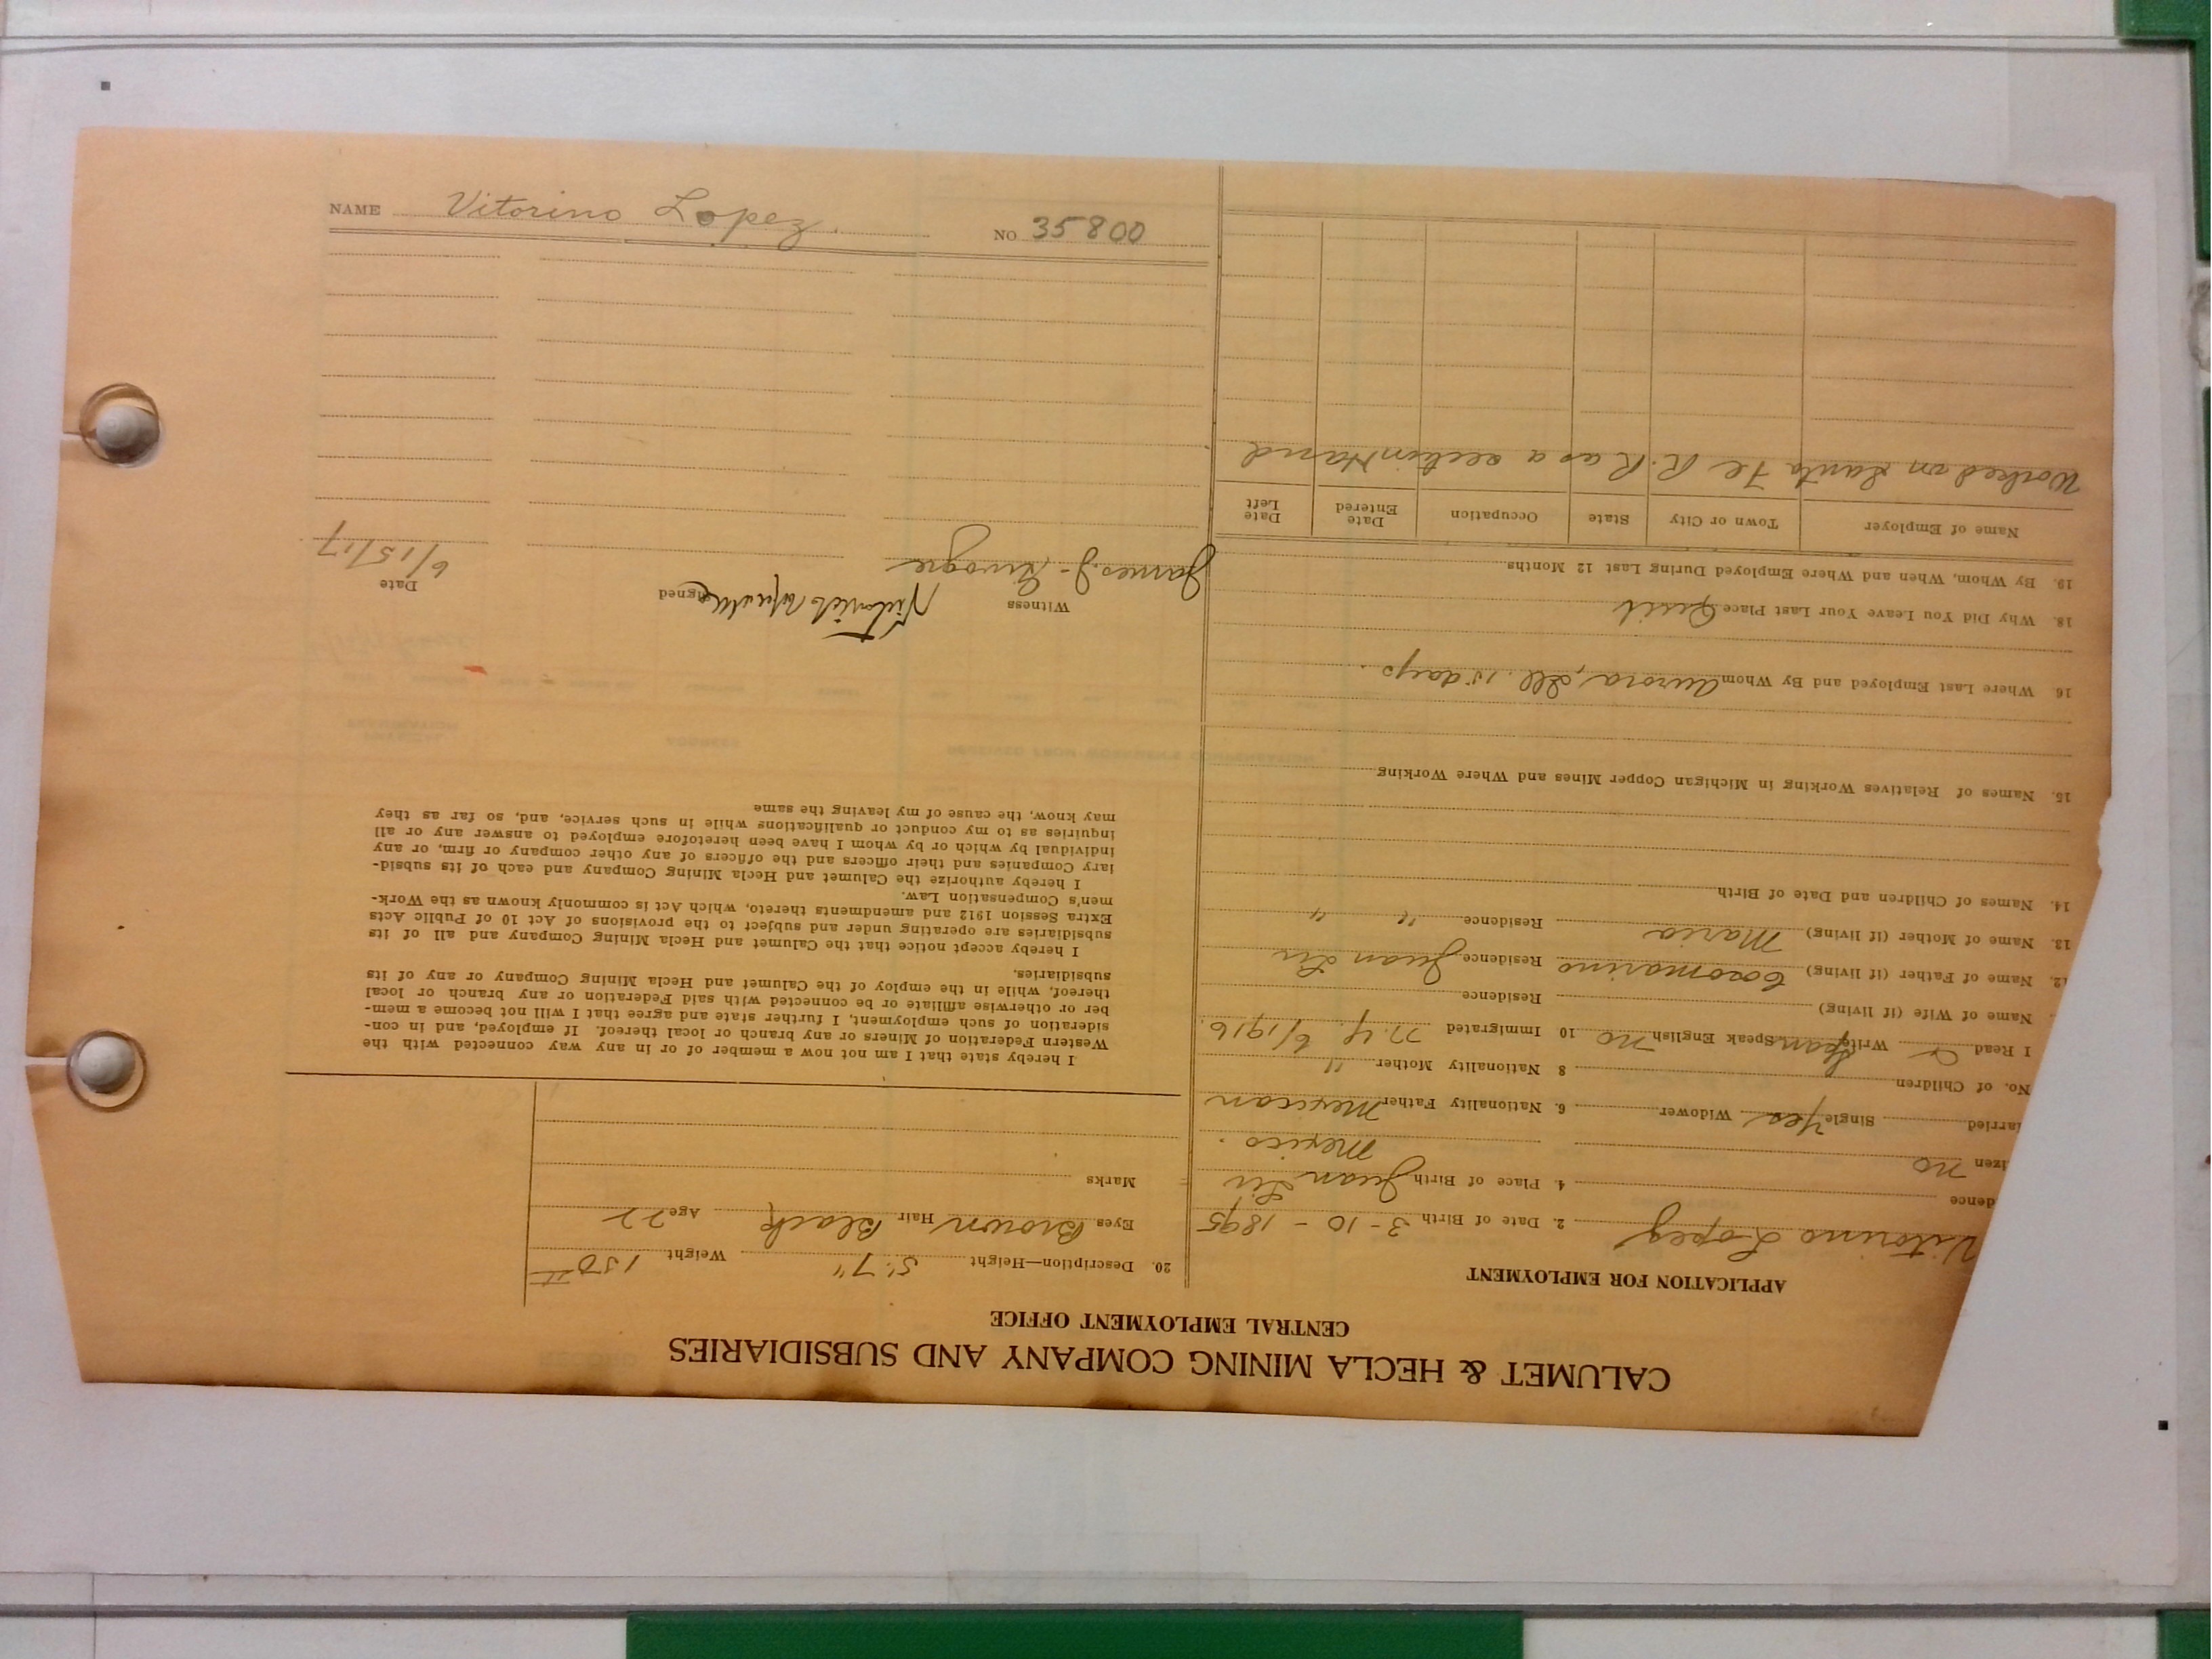 NAME Vitorino Lopez. NO 35800
CALUMET & HECLA MINING COMPANY AND SUBSIDIARIES
CENTRAL EMPLOYMENT OFFICE
APPLICATION FOR EMPLOYMENT
Vitorino Lopez 2. Date of Birth 3-10-1895
dence 4. Place of Birth Juan
izen no Mexico.
arried Single Yes Widower 6. Nationality Father Mexican
No. of Children 8 Nationality Mother "
I Read Write Span Speak English no 10 Immigrated 6/1916.
Name of Wife (if living) Residence
12. Name of Father (if living) Residence Juan
13. Name of Mother (if living) Maria Residence " "
14. Names of Children and Date of Birth
15. Names of Relatives Working in Michigan Copper Mines and Where Working
16 Where Last Employed and By Whom Aurora, Ill. 15 days.
18. Why Did You Leave Your Last Place Quit
19. By Whom, When and Where Employed During Last 12 Months
Name of Employer Town or City State Occupation Date Entered Date Left
Worked on Santa Fe R.R as a section Hand
20. Description—Height 5'7" Weight 150
Eyes Brown Hair Black Age 22
Marks
I hereby state that I am not now a member of or in any way connected with the
Western Federation of Miners or any branch or local thereof. If employed, and in con-
sideration of such employment, I further state and agree that I will not become a mem-
ber or otherwise affiliate or be connected with said Federation or any branch or local
thereof, while in the employ of the Calumet and Hecla Mining Company or any of its
subsidiaries.
I hereby accept notice that the Calumet and Hecla Mining Company and all of its
subsidiaries are operating under and subject to the provisions of Act 10 of Public Acts
Extra Session 1912 and amendments thereto, which Act is commonly known as the Work-
men's Compensation Law.
I hereby authorize the Calumet and Hecla Mining Company and each of its subsid-
iary Companies and their officers and the officers of any other company or firm, or any
individual by which or by whom I have been heretofore employed to answer any or all
inquiries as to my conduct or qualifications while in such service, and, so far as they
may know, the cause of my leaving the same
Witness Signed Date
James J. 6/15/17